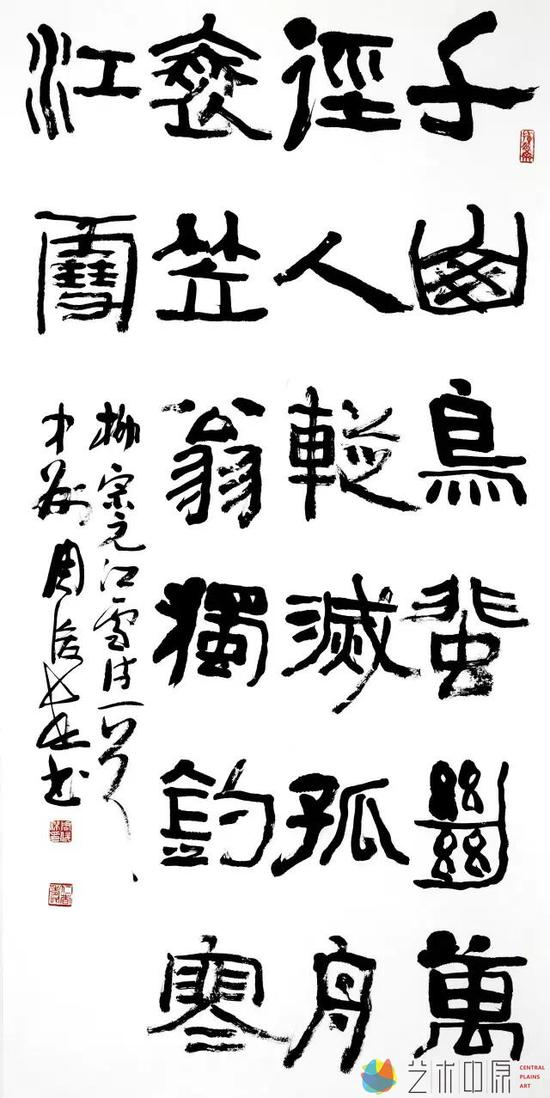 千山鳥蜚絕萬
徑人蹤滅孤舟
蓑笠翁獨釣寒
江雪
柳宗元江雪诗一首
中州周俊杰书
艺术中原
CENTRAL
PLAINS
ART